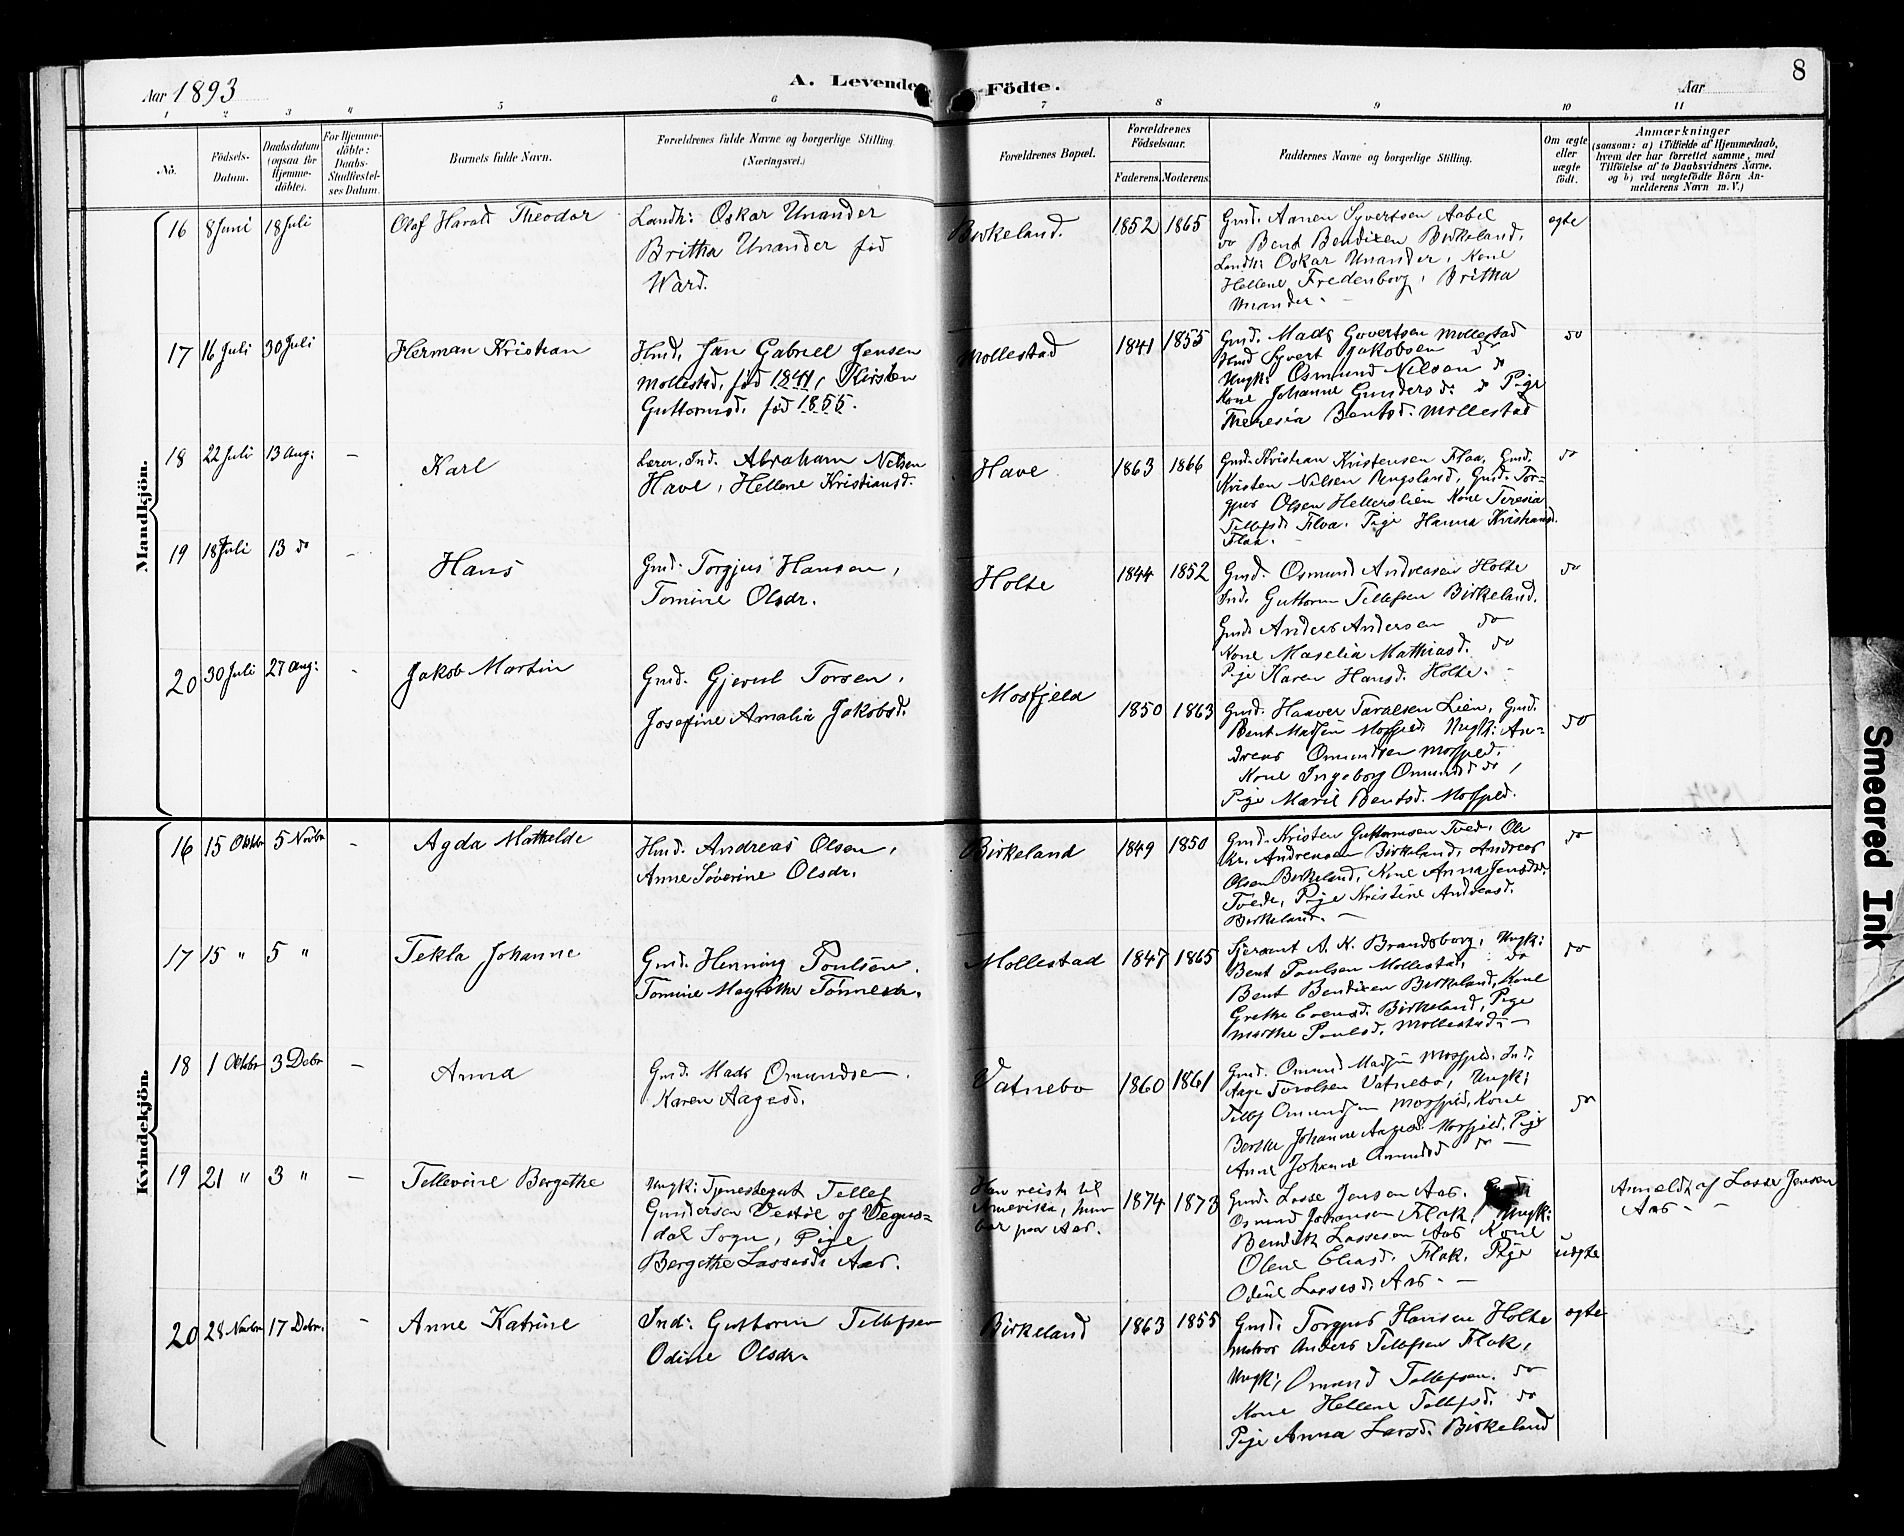 Aar 1893
A. Levende Födte.
Aar
8
1 2 3 4 5 6 7 8 9 10 11
No.
Födsels-Datum.
Daabsdatum (ogsaa for Hjemmedöbte).
For Hjemmedöbte: Daabs-Stadfæstelses Datum.
Barnets fulde Navn.
Forældrenes fulde Navne og borgerlige Stilling (Næringsvei.)
Forældrenes Bopæl.
Forældrenes Födselsaar.
Faderens. Moderens.
Faddernes Navne og borgerlige Stilling.
Om ægte eller uægte födt.
Anmærkninger
(saasom: a) i Tilfælde af Hjemmedaab,
hvem der har forrettet samme, med
Tilföielse af to Daabsvidners Navne.
og b) ved uægtefödte Börn An-
melderens Navn m. V.)
Mandkjön.
16 8 Juni 18 Juli Olaf Harald Theodor
Landh: Oskar Unander
Britha Unander fød
Ward.
Birkeland. 1852 1865
Gmd. Aanen Syvertsen Aabel
do Bent Bendixen Birkeland,
Landh: Oskar Unander, Kone
Hellene Fredenborg, Britha
Unander. –
egte
17 16 Juli 30 Juli Herman Kristian
Hmd. Jan Gabriel Jensen
Mollestad, fød 1841, Kirsten
Guttormsd. fød 1855.
Mollestad 1841 1855
Gmd. Mads Govertsen Mollestad
Hmd Syvert Jakobsen do
Ungk: Osmund Nilsen do
Kone Johanne Gundersd: do Pige
Theresia Bentsd. Mollestad
do
18 22 Juli 13 Aug: – Karl
Lærer, Ind. Abraham Nilsen
Have, Hellene Kristiansd.
Have 1863 1866
Gmd. Kristian Kristensen Flaa, Gmd.
Kristen Nilsen Rugsland, Gmd. Tor-
gjus Olsen Hellerslien Kone Teresia
Tellefsd. Flaa. Pige Hanna Kristiansd.
Flaa. –
do
19 18 Juli 13 do – Hans
Gmd. Torgjus Hansen,
Tomine Olsdr.
Holte 1844 1852
Gmd. Osmund Andreasen Holte
Ind. Guttorm Tellefsen Birkeland.
Gmd. Anders Andersen do
Kone Maselia Mathiasd. do
Pige Karen Hansd. Holte. –
do
20 30 Juli 27 Aug: – Jakob Martin
Gmd. Gjerul Torsen,
Josefine Amalia Jakobsd.
Mosfjeld 1850 1863
Gmd. Haaver Taralsen Lien, Gmd.
Bent Madsen Mosfjeld Ungk: An-
dreas Omundsen Mosfjeld.
Kone Ingeborg Omundsd do,
Pige Marie Bentsd. Mosfjeld.
do
Kvindekjön.
16 15 Oktbr 5 Novbr – Agda Mathelde
Hmd. Andreas Olsen,
Anne Söverine Olsdr.
Birkeland 1849 1850
Gmd. Kristen Guttormsen Tved, Ole
Kr. Andreasen Birkeland, Andreas
Olsen Birkeland, Kone Anna Jensdr.
Tvede, Pige Kristine Andreasd.
Birkeland. –
do
17 15 " 5 " Tekla Johanne
Gmd. Henning Poulsen.
Tomine Magrethe Tönnesdr.
Mollestad 1847 1865
Sjersant A. K. Brandsborg, Ungk:
Bent Poulsen Mollestad, do
Bent Bendixen Birkeland, Kone
Grethe Evensd. Birkeland, Pige
Marthe Poulsd. Mollestad. –
do
18 1 Oktbr 3 Debr – Anna
Gmd. Mads Omundsen.
Karen Aagesd.
Vatnebo 1860 1861
Gmd. Omund Madsen Mosfjeld. Ind.
Aage Torolsen Vatnebo, Ungk:
Tellef Omundsen Mosfjeld, Kone
Berthe Johanne Aagesd. Mosfjeld. Pige
Anne Johanne Omundsd do –
do
19 21 " 3 " – Tellevine Bergethe
Ungk: Tjenestegut Tellef
Gundersen Vestöl af Vegus-
dal Sogn, Pige
Bergethe Lassesd. Aas.
Han reist til
Amerika, hun
bor paa Aas. 1874 1873
Gmd. Lasse Jensen Aas.
Osmund Johansen Flak, Ungk:
Bendik Lassesen Aas Kone
Olene Eliasd. Flak, Pige
Odine Lassesd. Aas. –
uægte
Anmeldt af Lasse Jensen
Aas –
20 28 Novbr 17 Debr. – Anne Katrine
Ind: Guttorm Tellefsen
Odine Olsdr.
Birkeland 1863 1855
Gmd. Torgjus Hansen Holte
Anders Tellefsen Flak,
Ungk: Omund Tellefsen. do
Kone Hellene Tellefsd. do
Pige Anna Larsd. Birkeland
egte
Smeared Ink